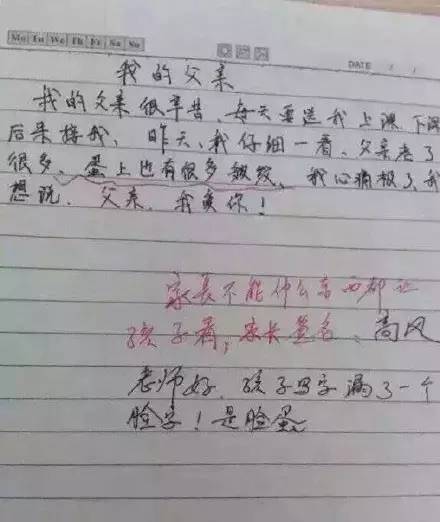 Mo Tu We Th Fr Sa Su
DATE / /
我的父亲
我的父亲很辛苦、每天要送我上课、下课
后来接我、昨天、我仔细一看、父亲老了
很多、蛋上也有很多皱纹、我心痛极了、我
想说、父亲、我爱你!
家长不能什么东西都让
孩子看,家长签名、高风
老师好、孩子写字漏了一个
脸字!是脸蛋